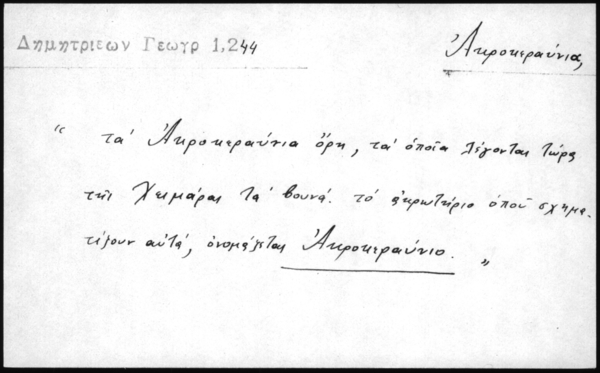 Δημητριεων Γεωγρ 1,244
Ἀκροκεραύνια,
“ τά Ἀκροκεραύνια ὄρη, τά ὁποῖα λέγονται τώρα
τῆς Χειμάρας τά βουνά. τό ἀκρωτήριο ὁπού σχημα-
τίζουν αὐτά, ὀνομάζεται Ἀκροκεραύνιο. „